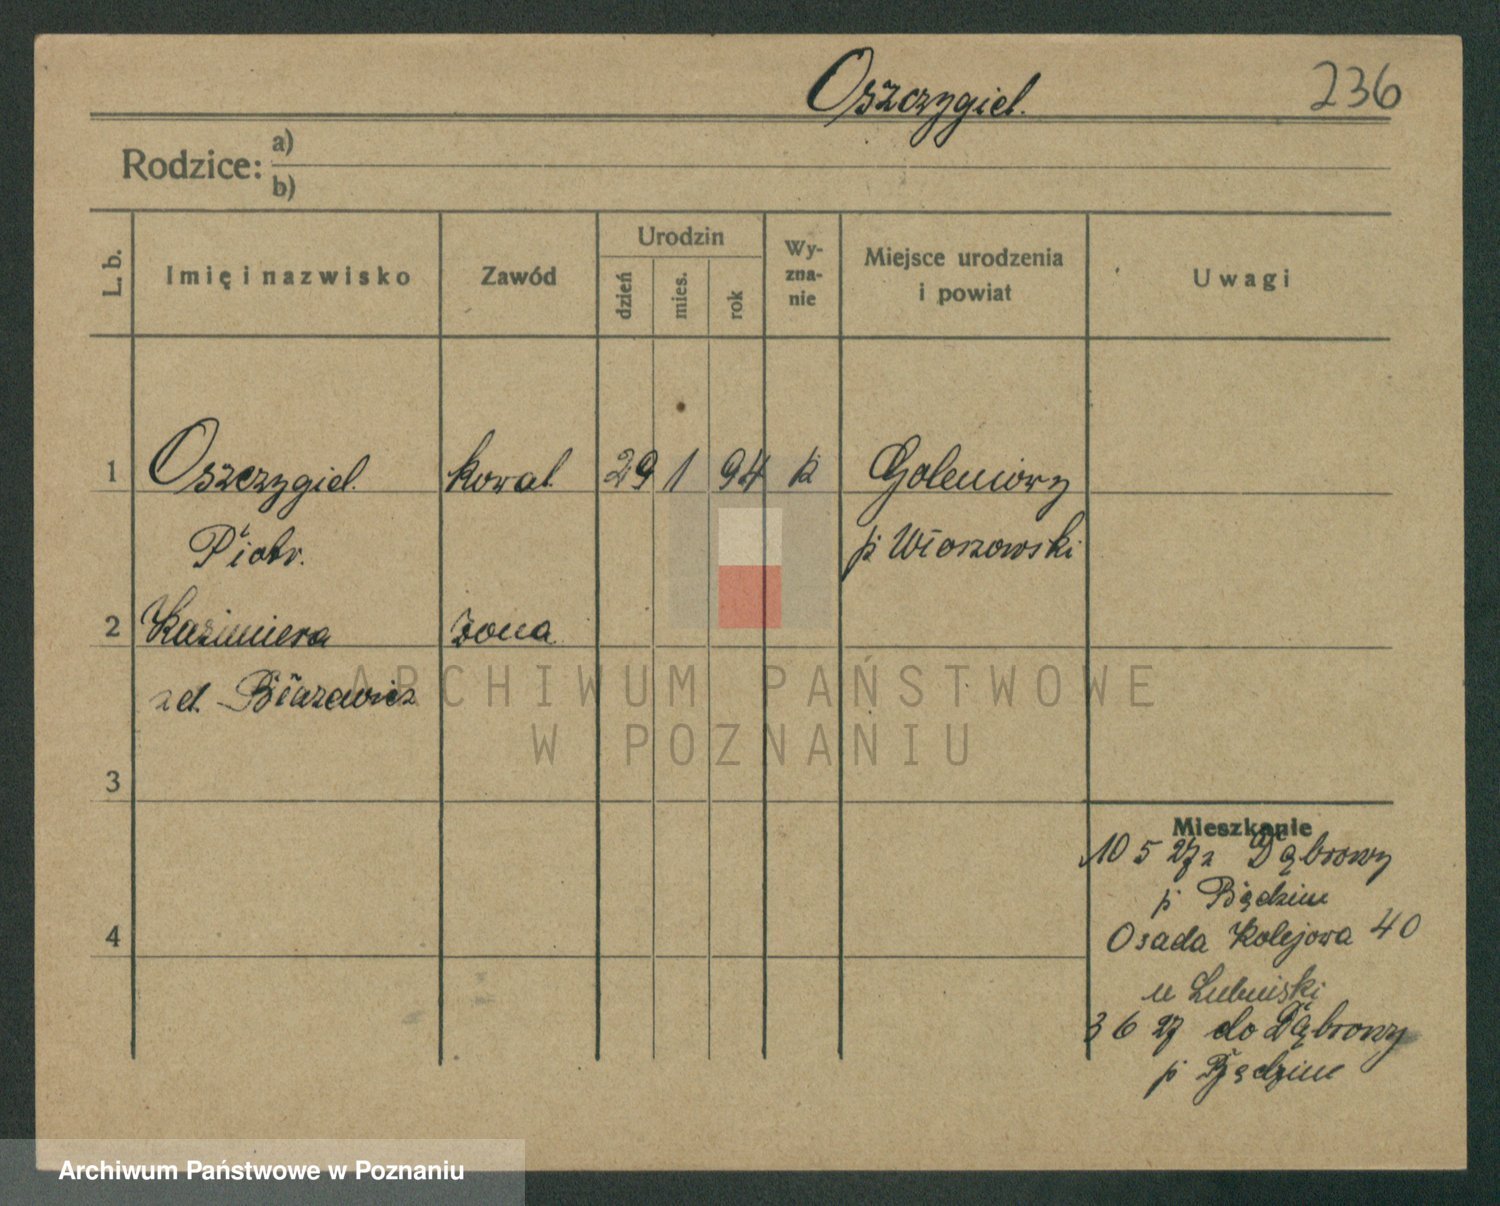 Oszczygieł.
236
Rodzice: a)
b)
L. b.
Imię i nazwisko
Zawód
Urodzin
dzień
mies.
rok
Wy-
zna-
nie
Miejsce urodzenia
i powiat
Uwagi
1 Oszczygieł. kowal. 29 1 94 k Goleniowy
Piotr. p. Włoszowski
2 Kazimiera żona
zd.
ARCHIWUM PAŃSTWOWE
W POZNANIU
3
Mieszkanie
10 5 27 z Dąbrowy
p. Będzin
4
Osada Kolejowa 40
u Lubiński
3 6 27 do Dąbrowy
p. Będzin
Archiwum Państwowe w Poznaniu